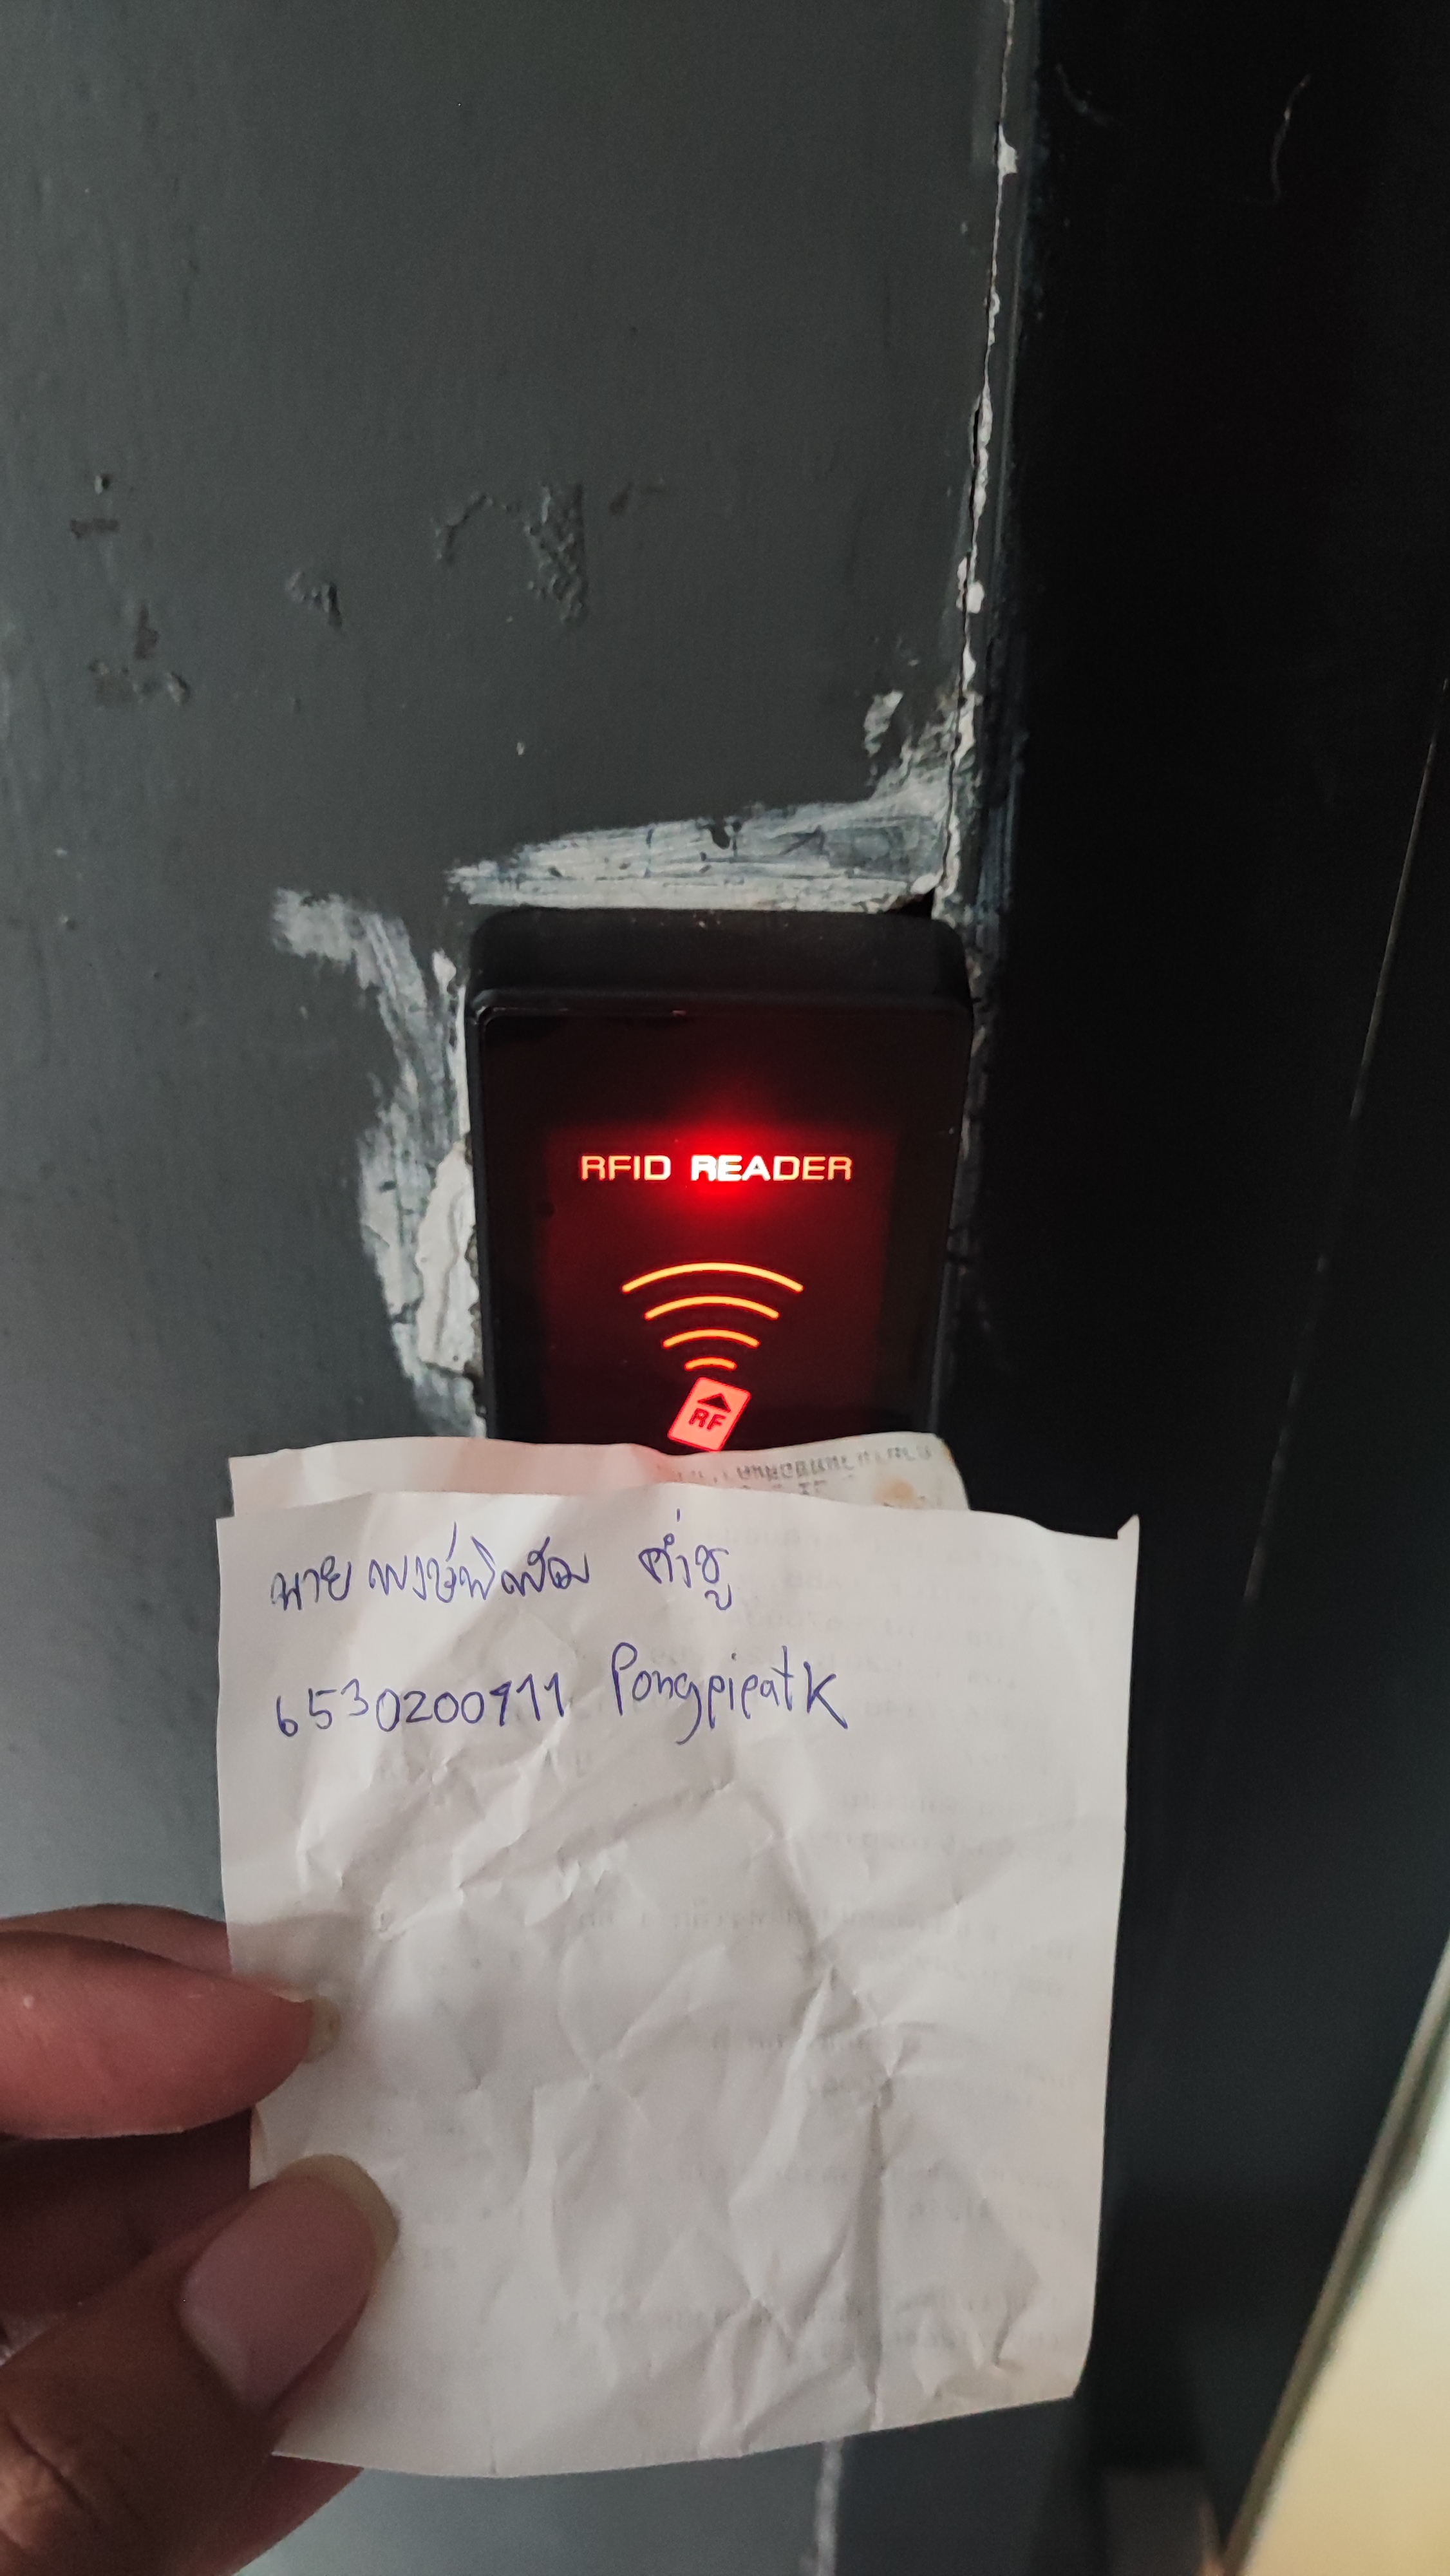 RFID READER
RF
นาย พงษ์พิพัฒ คำชู
6530200911 PongpipatK